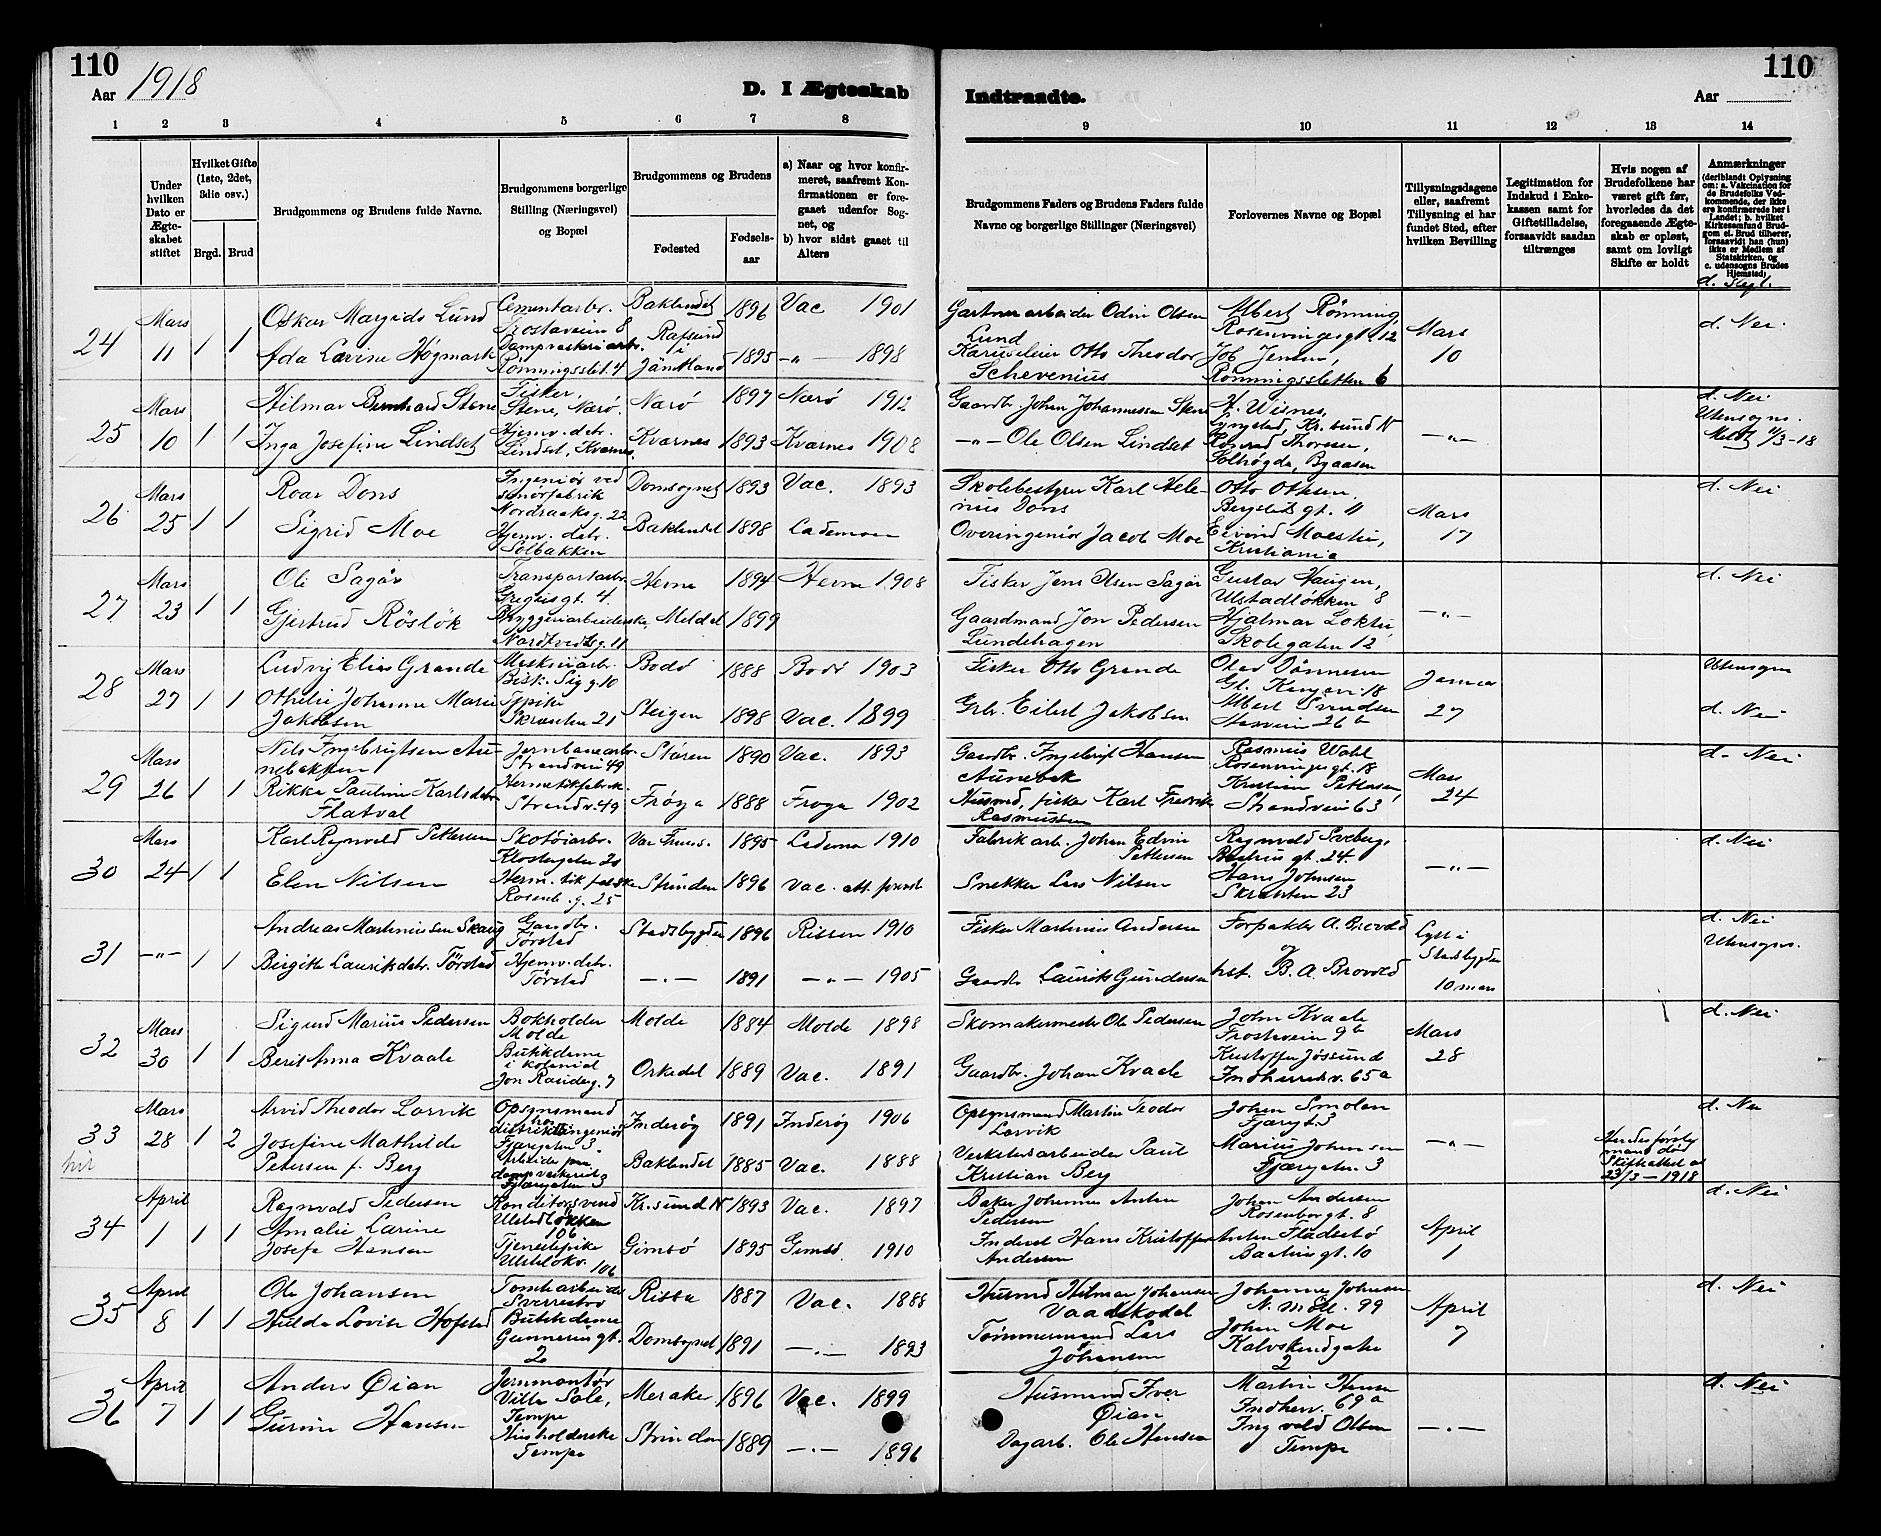 110
Aar 1918
D. I Ægteskab
Indtraadte.
110
Aar
1 2 3 4 5 6 7 8 9 10 11 12 13 14
Under hvilken Dato er Ægteskabet stiftet
Hvilket Gifte (1ste, 2det, 3die osv.)
Brgd. Brud
Brudgommens og Brudens fulde Navne.
Brudgommens borgerlige Stilling (Næringsvei) og Bopæl
Brudgommens og Brudens
Fødested
Fødselsaar
a) Naar og hvor konfirmeret, saafremt Konfirmationen er foregaaet udenfor Sognet, og
b) hvor sidst gaaet til Alters
Brudgommens Faders og Brudens Faders fulde Navne og borgerlige Stillinger (Næringsvei)
Forlovernes Navne og Bopæl
Tillysningsdagene eller, saafremt Tillysning ei har fundet Sted, efter hvilken Bevilling
Legitimation for Indskud i Enkekassen samt for Giftetilladelse, forsaavidt saadan tiltrænges
Hvis nogen af Brudefolkene har været gift før, hvorledes da det foregaaende Ægteskab er opløst, samt om lovligt Skifte er holdt
Anmærkninger (deriblandt Oplysning om: a. Vakcination for de Brudefolks Vedkommende, der ikke ere konfirmerede her i Landet; b. hvilket Kirkesamfund Brudgom el. Brud tilhører, forsaavidt han (hun) ikke er Medlem af Statskirken, og c. udensogns Brudes Hjemsted)
24 Mars 11 1 1 Oskar Lund Cementarb. Baklandet 1896 Vac 1901 Gartnerarbeider Odin Olsen Lund Albert Rønning Rosenvingesgt. 12 Mars 10 d. Nei
Högmark Rønningsslet. 4 Jämtland 1895 -„- 1898 Otto Theodor Schevenius Jensen, Rønningssletten 6
25 Mars 10 1 1 Hilmar Bernhard Stene Fisker, Stene, Nærø. Nærø 1897 Nærø 1912 Gaardbr. Johan Johannessen Stene H. Visnes, Kr.sund N -„- d. Nei Utensogns. Meldt 11/3-18
Inga Josefine Lindset Hjemv. dtr. Lindset, Kvernes. Kværnes 1893 Kvernes 1908 -„- Ole Olsen Lindset Thoresen, Byaasen
26 Mars 25 1 1 Roar Dons Ingeniør ved smørfabrik Nordraaksg. 22 Domsognet 1893 Vac. 1893 Skolebestyrer Karl Helenius Dons Otto Ottesen, gt. 11 Mars 17 d. Nei
Sigrid Moe Hjemv. datr. Solbakken Baklandet 1898 Lademoen Overingeniør Jacob Moe Eivind Kristiania
27 Mars 23 1 1 Ole Sagør Transportarb. gt. 4. Hevne 1894 Hevne 1908 Fisker Jens Olsen Sagør Gustav Haugen, Ulstadløkken 8 -„- d. Nei
Gjertrud Röslök Bryggeriarbeiderske, Meldal 1899 Gaardmand Jon Pedersen Lundehagen Hjalmar Skolegaten 12
28 Mars 27 1 1 Ludvig Elias Grande Bisk. Sig. g. 10 Bodø 1888 Bodø 1903 Fisker Otto Grande Olav Dønnesen 18 Januar 27 Utensogn
Othelie Johanne Marie Jakobsen Skraanten 21 Steigen 1898 Vac. 1899 Grbr. Eilert Jakobsen Albert Svendsen 26 b d. Nei
29 Mars 26 1 1 Nils Ingebrigtsen Aunebakken Jernbanearb. Strandvei 49 Støren 1890 Vac. 1893 Gaardbr. Ingebrigt Hansen Aunebak Rasmus Wahl Rosenvingesgt. 18 Mars 24 d. Nei
Rikke Pauline Karlsdatr Flatval Hermetikfabrik Strandv. 49 Frøya 1888 Frøya 1902 Husmd, fisker Karl Fredrik Rasmussen Kristian Pettersen, Strandvei 63
30 Mars 24 1 1 Karl Ragnvald Pettersen Skotøiarb. Klostergaten 20 Vor Frues. 1895 Lademo 1910 Fabrik arb. Johan Edvin Pettersen Ragnvald Sveberg, gt. 24. -„- d. Nei
Elen Nilsen Rosenb. g. 25 Strinden 1896 Vac. att. Snekker Lars Nilsen Hans Johnsen Skraanten 23
31 -„- 1 1 Andreas Martiniussen Skaug Gaardbr. Tørstad Stadsbygden 1896 Rissen 1910 Fisker Martinus Andersen Forpakter A. Brovold Lyst i Stadsbygden 10 mars d. Nei Utensogns.
Birgitte Lauriksdatr. Tørstad Hjemv. datr. Tørstad -„- 1891 -„- 1905 Gaardbr Laurits Gundersen hst. B. A. Brovold
32 Mars 30 1 1 Sigurd Marius Pedersen Bokholder Molde Molde 1884 Molde 1898 Skomakermester Ole Pedersen John Kvaale 9 b Mars 28 d. Nei
Berit Anna Kvaale Butikdame i kolonial Jon Raudesg. 7 Orkedal 1889 Vac. 1891 Gaardbr. Johan Kvaale Kristoffer Jøssund Indherredsv. 65a
33 Mars 28 1 2 Arvid Theodor Larvik Opsynsmand hos distriktsingeniør Fjæregaten 3. Inderøy 1891 Inderøy 1906 Opsynsmand Martin Teodor Larvik Johan Smolen Fjæregt. 3 -„- Hendes første mand død Skifteattest af 23/3-1918 d. Nei
Josefine Mathilde Petersen f. Berg Fjæregaten 3 Baklandet 1885 Vac. 1888 Verkstedsarbeider Paul Kristian Berg Marius Johansen Fjæregaten 3
34 April 1 1 1 Ragnvald Pedersen Konditorsvend Ulstadløkken 106 Kr.sund N 1893 Vac. 1897 Baker Johannes Anton Pedersen Johan Andersen Rosenborggt. 8 April 1 d. Nei
Amalie Larine Josefa Hansen Tjenestepike Ulstadløkv. 106 Gimsø 1895 Gimsø. 1910 Inderst Hans Kristoffer Andersen Anton Fladsetø gt. 10
35 April 8 1 1 Ole Johansen Tomtearbeider Sverresbro Rissa 1887 Vac. 1888 Husmd Hilmar Johansen Vaadskodal Johannes Johnsen N. møll. 99 April 7 d. Nei
Hulda Lovise Hofstad Butikdame Gunnerusgt. 2 Domsognet 1891 -„- 1893 Tømmermand Lars Johansen Johan Moe Kalvskindgate 2
36 April 7 1 1 Anders Øian Jernmontør Villa Sole, Tempe Meraker 1896 Vac. 1899 Husmand Iver Øian Martin Hansen Indherr. 69a -„- d. Nei
Gurine Hansen Husholderske Tempe Strinden 1889 -„- 1896 Dagarb. Ole Hansen Ingvald Olsen Tempe